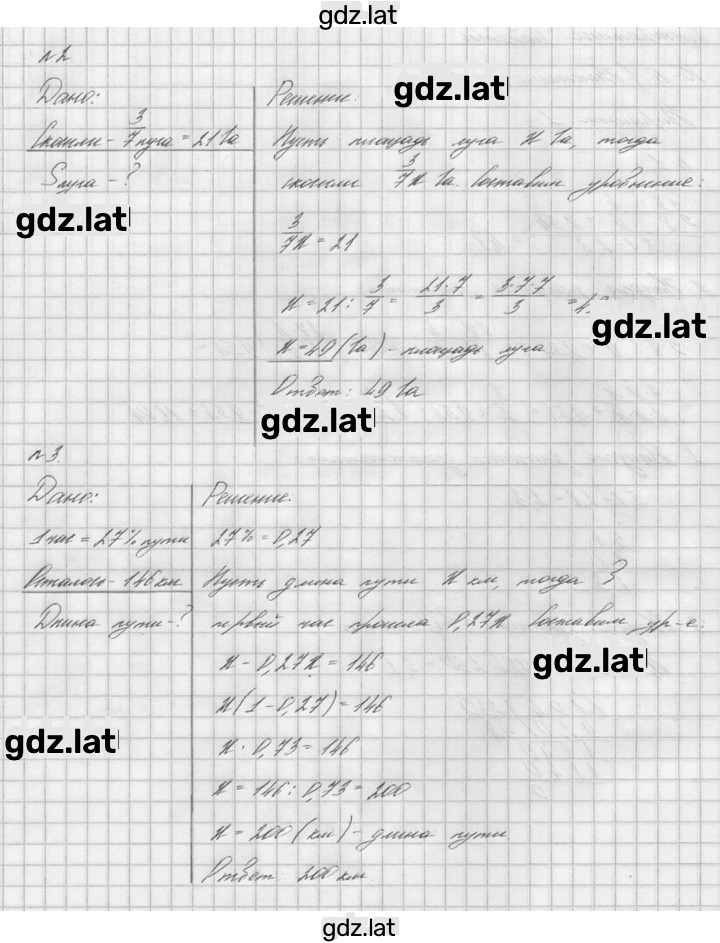 gdz.lat
№2
Дано:
Скосили - 3/7 луга = 21 га
Sлуга - ?
Решение.
Пусть площадь луга x га, тогда
скосили 3/7 x га. Составим уравнение:
3/7 x = 21
x = 21 : 3/7 = 21·7/3 = 3·7·7/3 =
x = 49 (га) - площадь луга
Ответ: 49 га
gdz.lat
gdz.lat
gdz.lat
gdz.lat
№3.
Дано:
1 час = 27% пути
Осталось - 146 км
Длина пути - ?
Решение.
27% = 0,27
Пусть длина пути x км, тогда з
первый час прошла 0,27x Составим ур-е:
x - 0,27x = 146
x(1 - 0,27) = 146
x · 0,73 = 146
x = 146 : 0,73 = 200
x = 200 (км) - длина пути
Ответ 200 км
gdz.lat
gdz.lat
gdz.lat